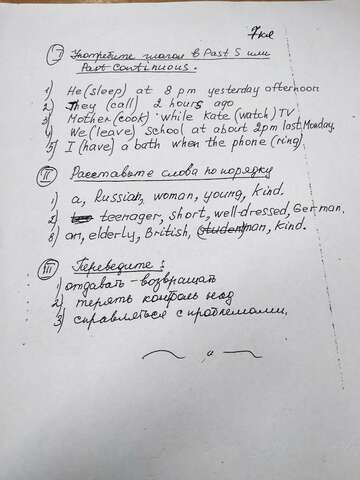 7 кл
I Употребите глагол в Past S или
Past Continuous.
1) He (sleep) at 8 pm yesterday afternoon
2) They (call) 2 hours ago
3) Mother (cook) while Kate (watch) TV
4) We (leave) school at about 2pm last Monday.
5) I (have) a bath when the phone (ring)
II Расставьте слова по порядку
1) a, Russian, woman, young, kind.
2) teenager, short, well-dressed, German.
3) an, elderly, British, man, kind.
III Переведите:
1) отдавать - возвращать
2) терять контроль над
3) справляться с проблемами.